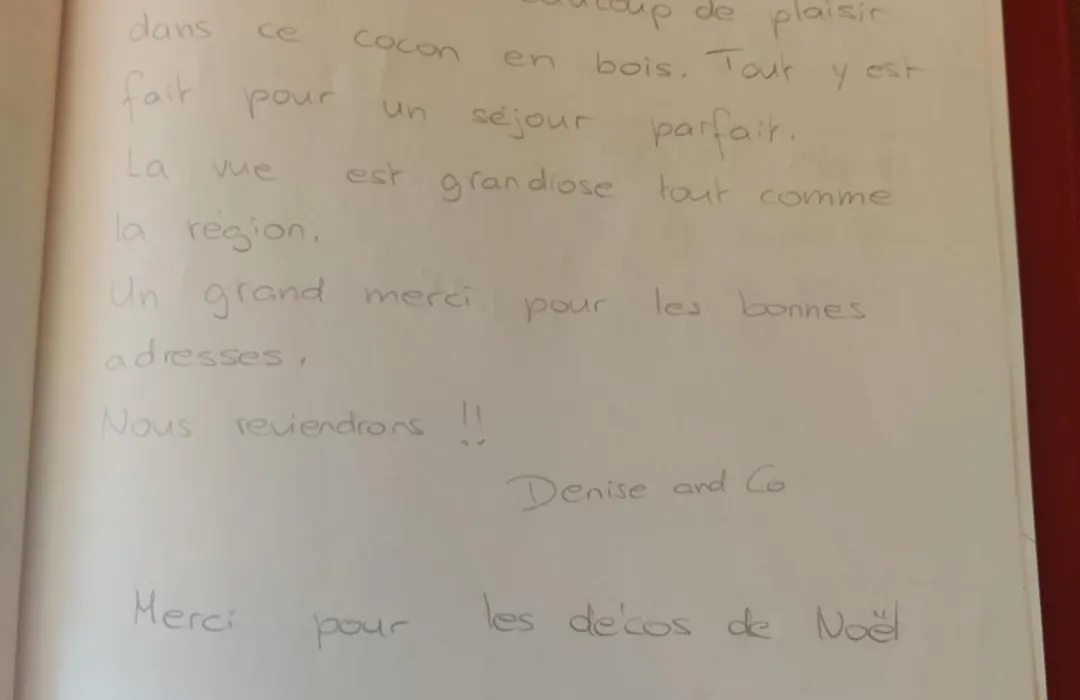 beaucoup de plaisir
dans ce cocon en bois. Tout y est
fait pour un séjour parfait.
La vue est grandiose tout comme
la région.
Un grand merci pour les bonnes
adresses.
Nous reviendrons !!
Denise and Co
Merci pour les décos de Noël